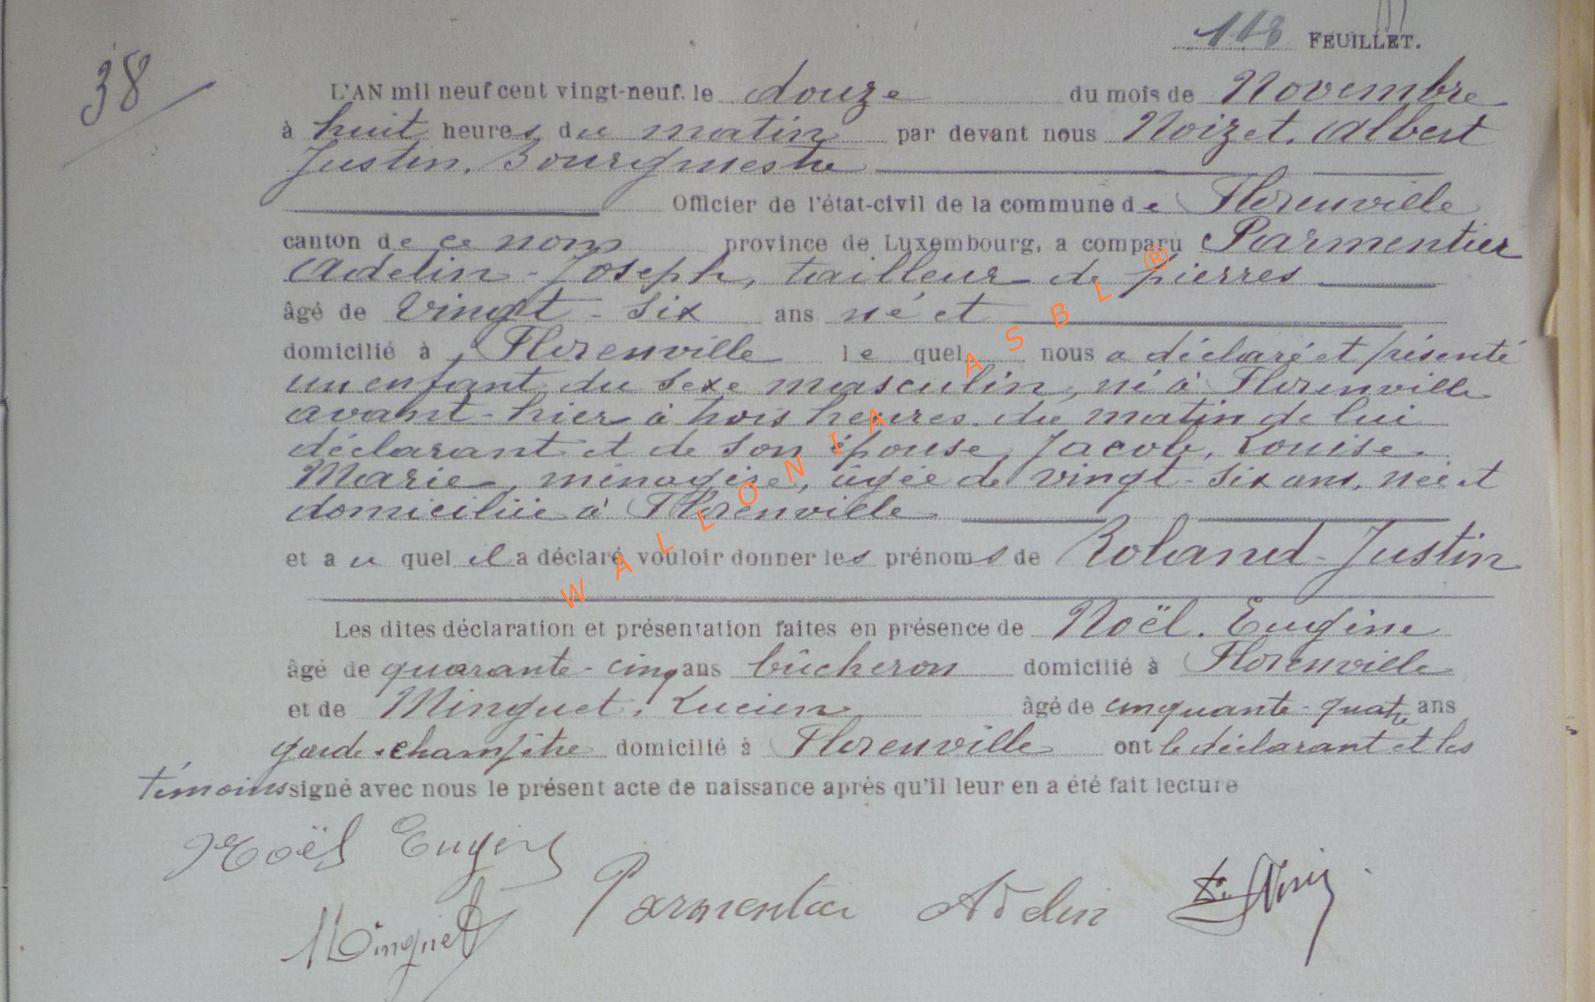 118 FEUILLET.
38
L'AN mil neuf cent vingt-neuf, le douze du mois de Novembre
à huit heures du matin par devant nous Noizet, Albert
Justin, Bourgmestre
Officier de l'état-civil de la commune de Florenville
canton de ce nom province de Luxembourg, a comparu Parmentier
Adelin-Joseph, tailleur de pierres
âgé de vingt-six ans né et
domicilié à Florenville lequel nous a déclaré et présenté
un enfant du sexe masculin, né à Florenville
avant-hier à trois heures du matin de lui
déclarant et de son épouse, Jacob, Louise
Marie, ménagère, âgée de vingt-six ans, née et
domiciliée à Florenville
et au quel il a déclaré vouloir donner les prénoms de Roland-Justin
Les dites déclaration et présentation faites en présence de Noël, Eugène
âgé de quarante-cinq ans bûcheron domicilié à Florenville
et de Minguet, Lucien âgé de cinquante-quatre ans
garde-champêtre domicilié à Florenville ont le déclarant et les
témoins signé avec nous le présent acte de naissance après qu'il leur en a été fait lecture
Noël Eugène
Minguet
Parmentier Adelin
WALLONIA ASBL ®